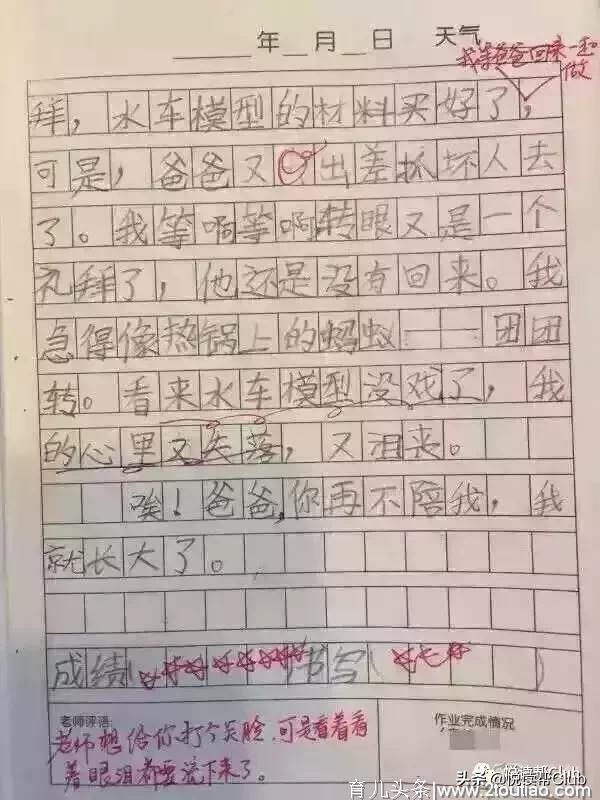 年 月 日 天气
我等爸爸回来一起做
拜,水车模型的材料买好了,
可是,爸爸又出差抓坏人去
了。我等啊等啊转眼又是一个
礼拜了,他还是没有回来。我
急得像热锅上的蚂蚁——团团
转。看来水车模型没戏了,我
的心里又失落,又沮丧。
唉!爸爸,你再不陪我,我
就长大了。
成绩( 书写( )
老师评语:
作业完成情况
老师想给你打个笑脸,可是看着看
着眼泪都要流下来了。
头条@悦读帮Club
悦读帮Club
育儿头条 www.2toutiao.com